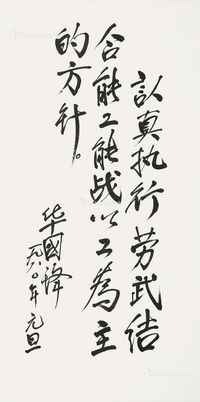 认真执行劳武结
合能工能战以工為主
的方针。
华國锋
一九八〇年元旦